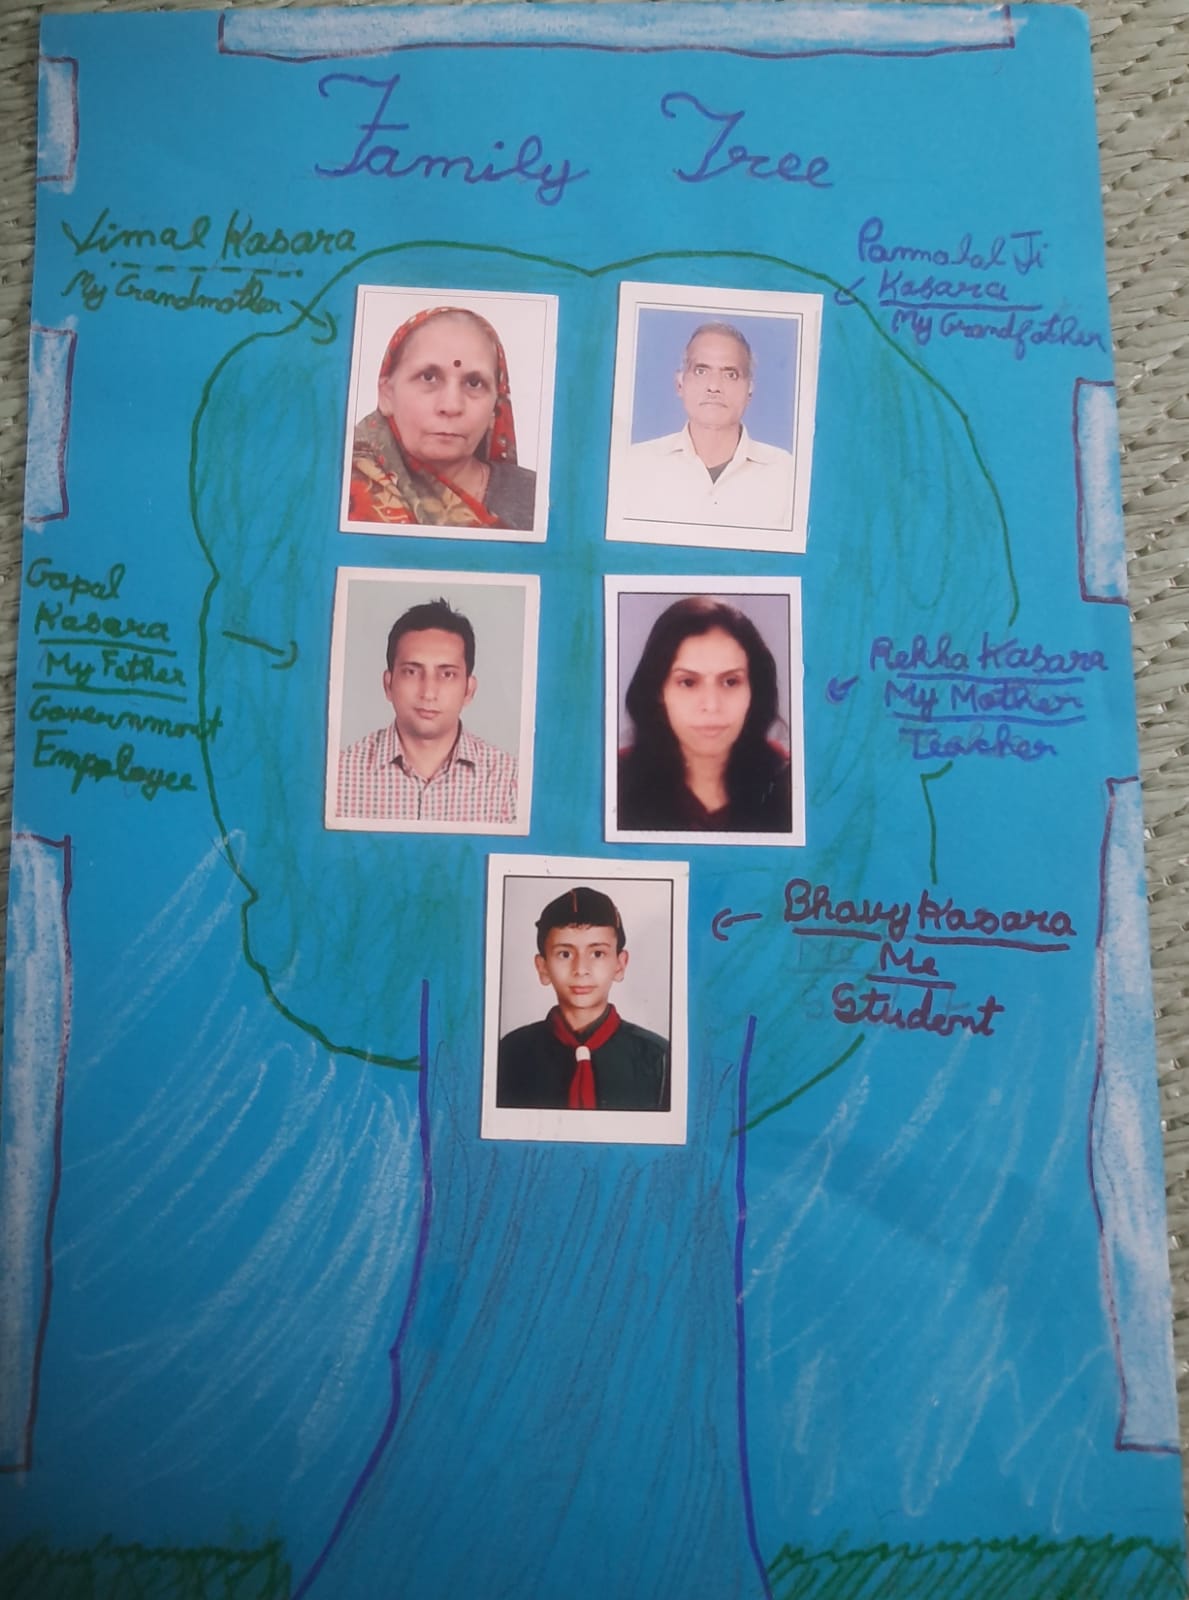 Family Tree
Vimal Kasara
My Grandmother
Pannalal Ji
Kasara
My Grandfather
Gopal
Kasara
My Father
Government
Employee
Rekha Kasara
My Mother
Teacher
Bhavy Kasara
Me
Student